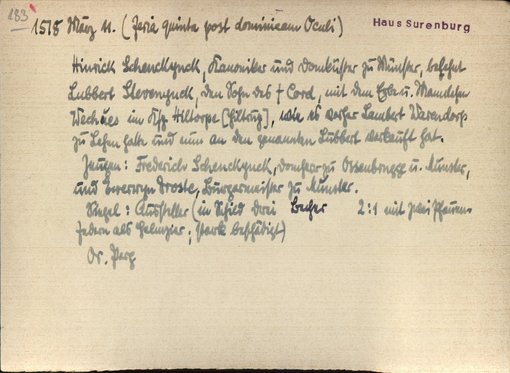 183
Haus Surenburg
1518 März 11. (feria quinta post dominicam Oculi)
Hinrick Schenckynck, Kanoniker und Domküster zu Münster, belehnt
Lubbert Stevenynck, den Sohn des † Cord, mit dem Erbe u.
im Ksp Hiltorpe [Hiltrup], wie es vorher Lambert Warendorp
zu Lehen hatte und nun an den genannten Lubbert verkauft hat.
Zeugen: Frederich Schenckynck, Domherr zu Ossenbrugge u. Munster,
und Everwyn Droste, Bürgermeister zu Münster.
Siegel: Aussteller (im Schild drei Becher 2:1 mit zwei Pfauen-
federn als Helmzier; stark beschädigt)
Or. Perg